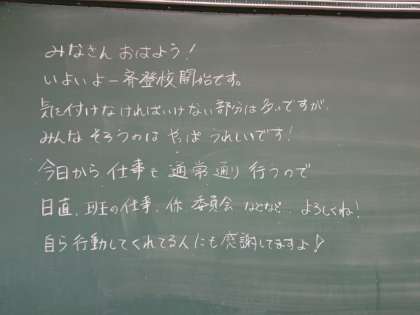 みなさん おはよう!
いよいよ一斉登校開始です。
気を付けなければいけない部分は多いですが、
みんなそろうのは やっぱ うれしいです!
今日から 仕事も 通常通り 行うので
日直、班の仕事、係 委員会 などなど… よろしくね!
自ら行動してくれてる人にも感謝してますよ♪